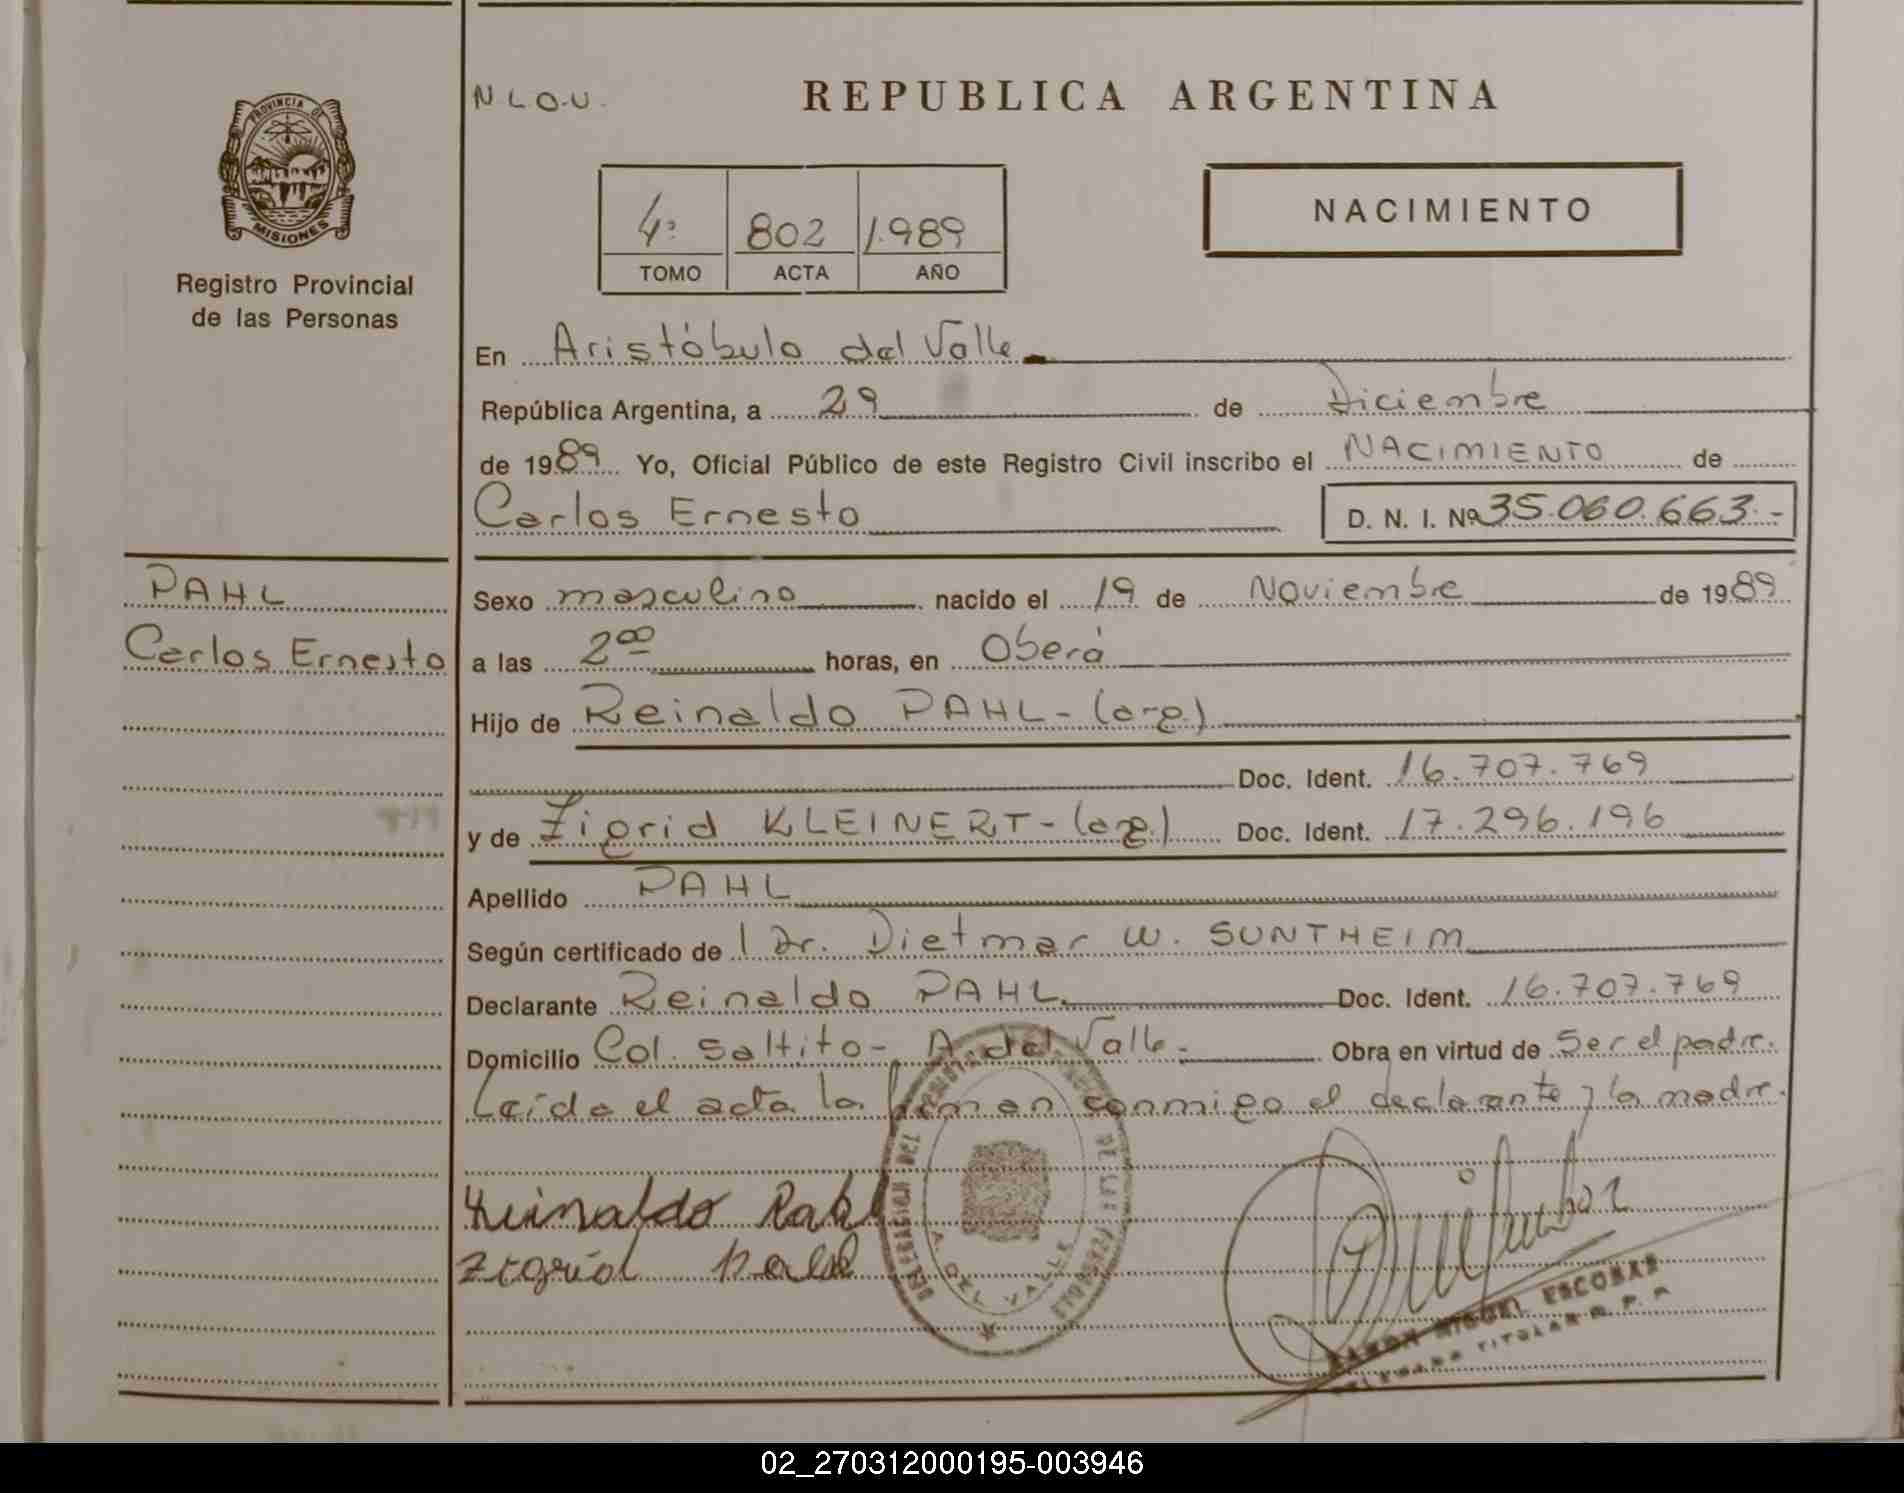 PROVINCIA DE
MISIONES
Registro Provincial
de las Personas
PAHL
Carlos Ernesto
N L O.U.
REPUBLICA ARGENTINA
4º 802 1.989
TOMO ACTA AÑO
NACIMIENTO
En Aristóbulo del Valle
República Argentina, a 29 de Diciembre
de 1989 Yo, Oficial Público de este Registro Civil inscribo el NACIMIENTO de
Carlos Ernesto D. N. I. Nº 35.060.663.-
Sexo masculino nacido el 19 de Noviembre de 1989
a las 2⁰⁰ horas, en Oberá
Hijo de Reinaldo PAHL - (arg.)
Doc. Ident. 16.707.769
y de Zigrid KLEINERT - (arg.) Doc. Ident. 17.296.196
Apellido PAHL
Según certificado de l Dr. Dietmar W. SUNTHEIM
Declarante Reinaldo PAHL Doc. Ident. 16.707.769
Domicilio Col. Saltito - A. del Valle - Obra en virtud de Ser el padre.
Leída el acta la firman conmigo el declarante y la madre.
Reinaldo Pahl
Zigrid Pahl
DELEGACION DEL
DE LAS PERSONAS
A. DEL VALLE
RAMON MIGUEL ESCOBAR
DELEGADO TITULAR R. P. P.
02_270312000195-003946